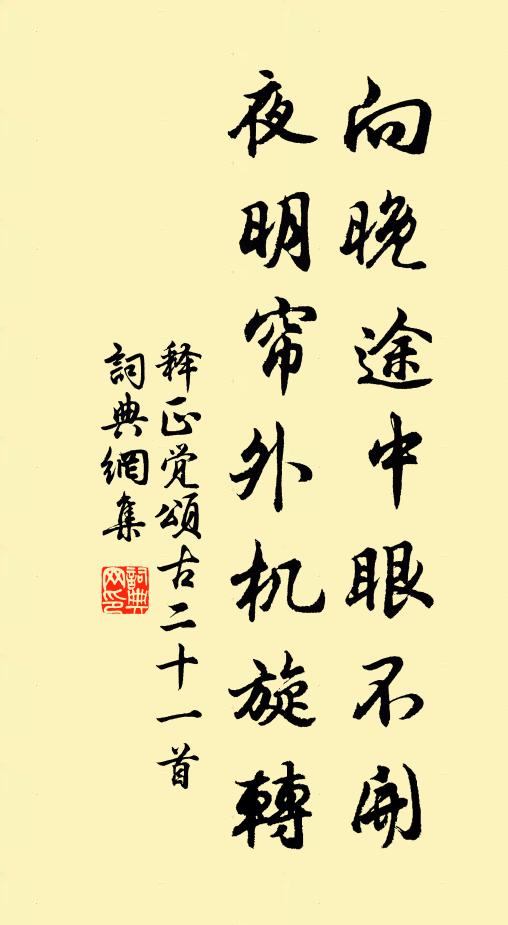 向晚途中眼不開
夜明帘外机旋轉
释正覺頌古二十一首
詞典網集
詞典网印